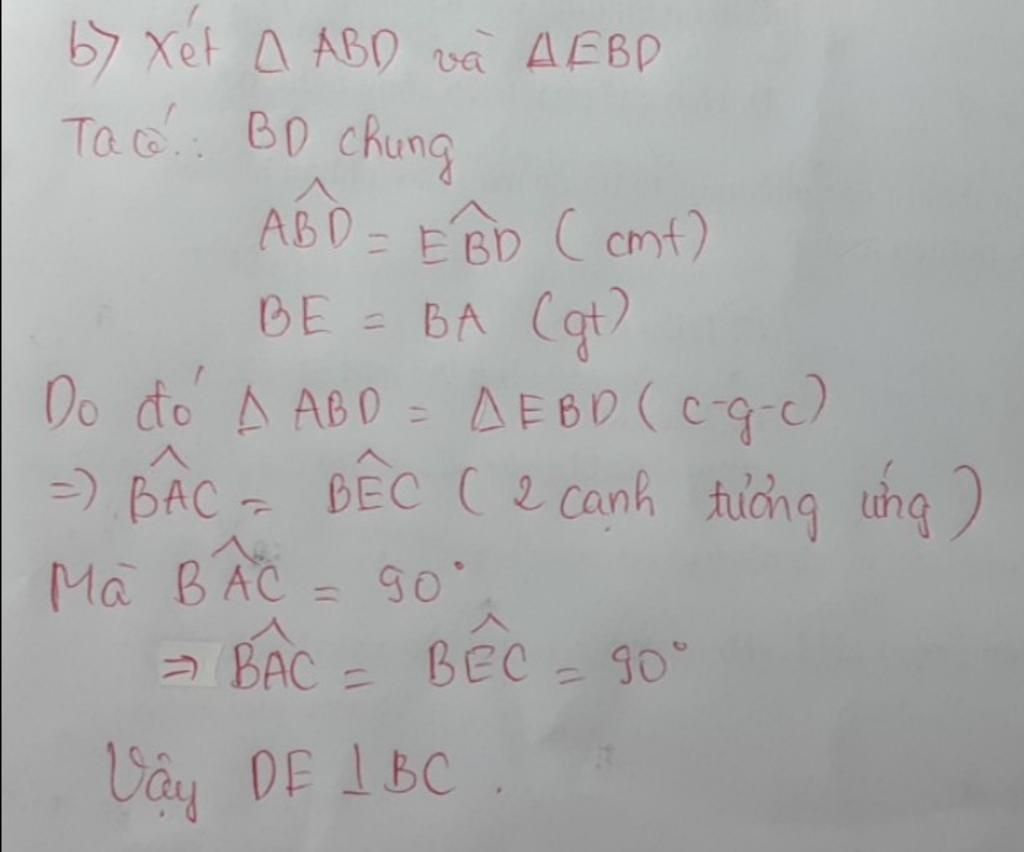 b) Xét Δ ABD và ΔEBD
Ta có: BD chung
ABD̂ = EBD̂ (cmt)
BE = BA (gt)
Do đó Δ ABD = ΔEBD (c-g-c)
=) BÂC = BÊC (2 cạnh tưởng ứng)
Mà BÂC = 90°
⇒ BÂC = BÊC = 90°
Vậy DE ⊥ BC.